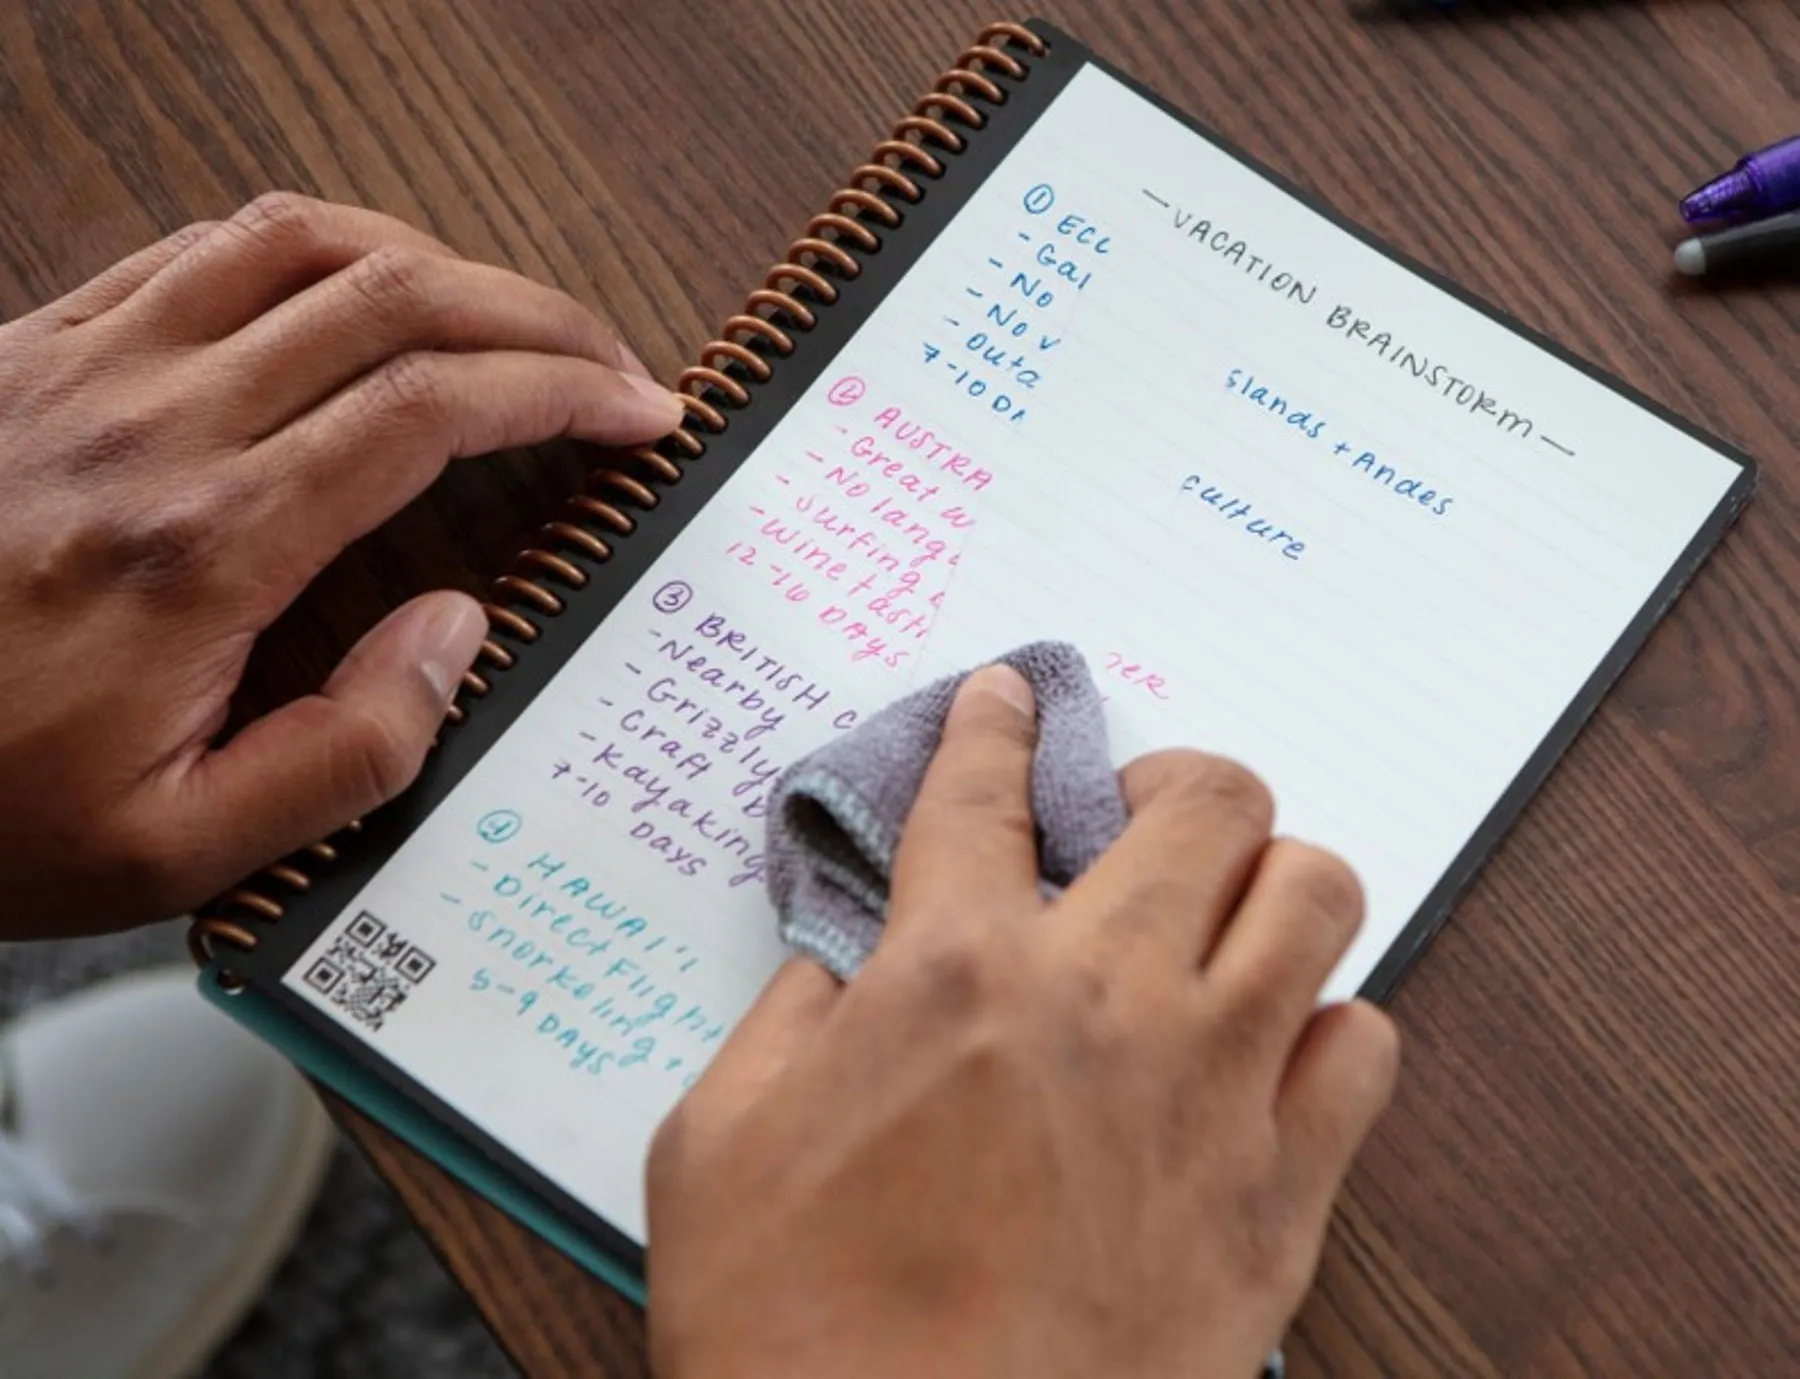 —VACATION BRAINSTORM—
① ECU
- Gal slands + Andes
- No
- No v culture
- Outd
7-10 DA
② AUSTRA
- Great w
- No langu
- Surfing
- Wine tasti
12-16 DAYS
③ BRITISH C
- Nearby
- Grizzly
- Craft b
- Kayaking
7-10 DAYS
④ HAWAI'I
- Direct Flight
- Snorkeling +
5-9 DAYS